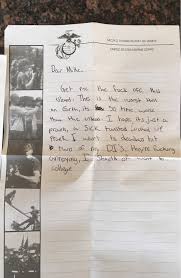 Dear Mike,
Get me the fuck off this
Island. This is the worst place
on Earth, its 50 times worse
than the videos. I hope its just a
prank, a sick twisted fucked up
Prank. I want to
of my DI's. They're fucking
annoying, I should of went to
college